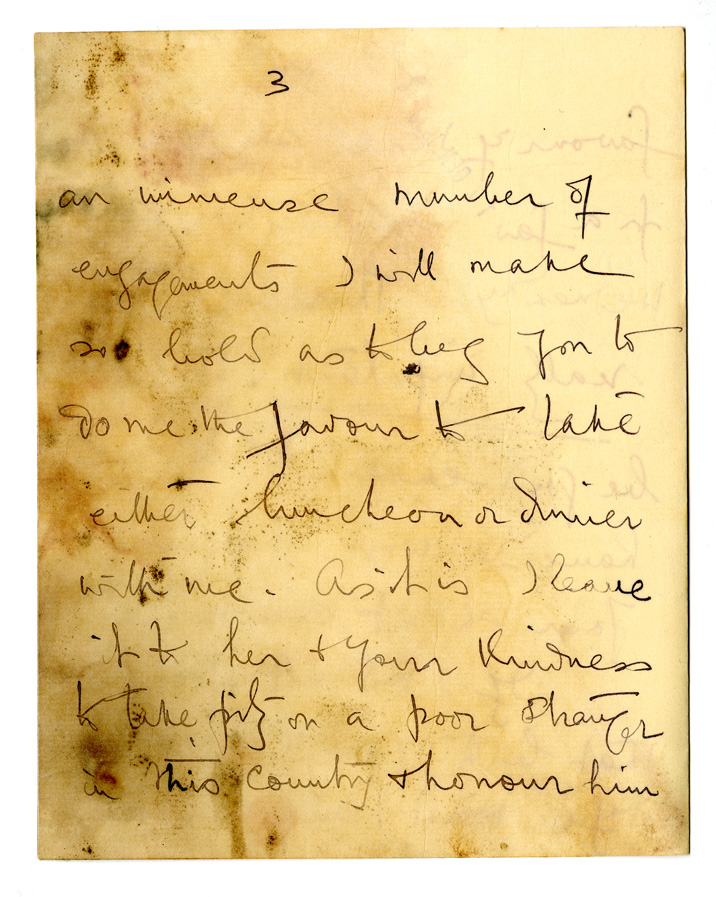 3
an immense number of
engagements I will make
so bold as to beg you to
do me the favour to take
either luncheon or dinner
with me. As it is I leave
it to her & your kindness
to take pity on a poor stranger
in this country & honour him